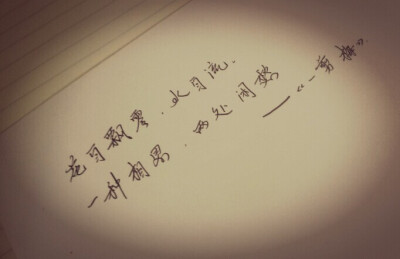 花自飘零.水自流.
一种相思.两处闲愁
——“一剪梅”